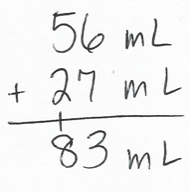 56 mL
+ 27 mL
1
83 mL